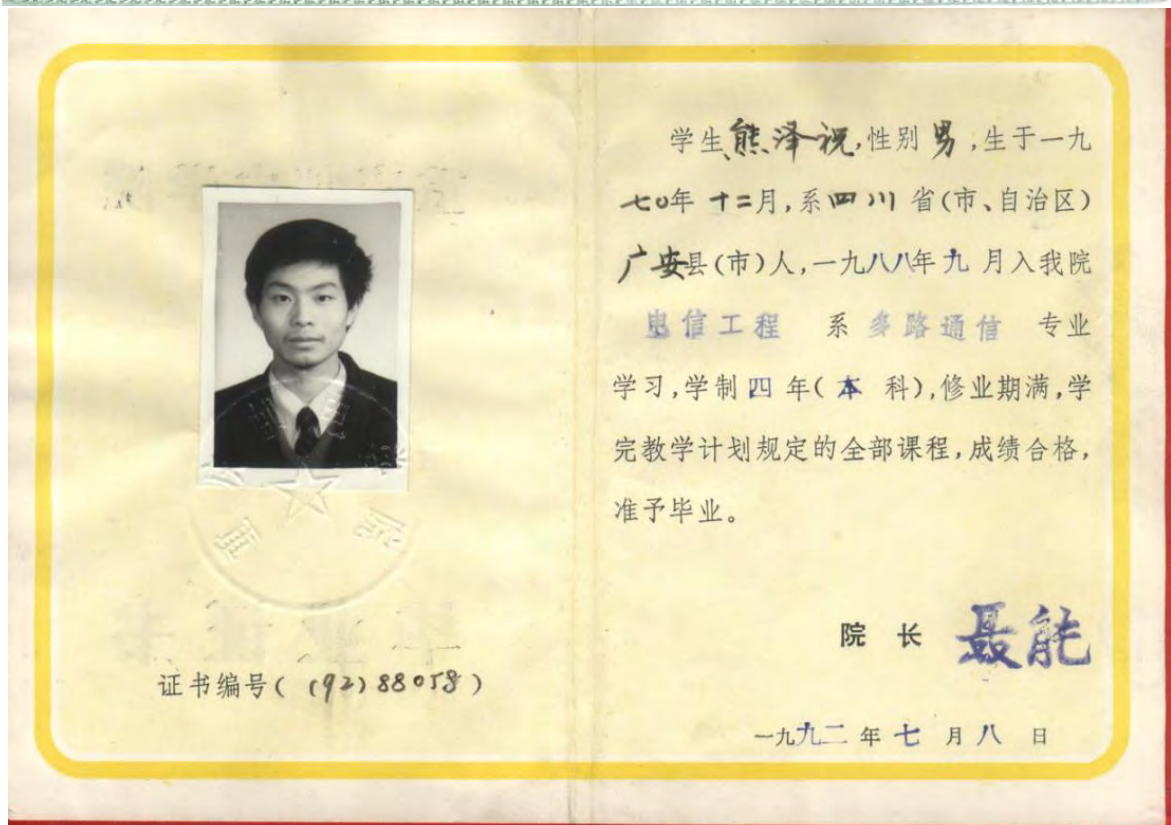 证书编号((92)88058)
学生熊泽祝,性别男,生于一九
七0年十二月,系四川省(市、自治区)
广安县(市)人,一九八八年九月入我院
电信工程 系 多路通信 专业
学习,学制四年(本科),修业期满,学
完教学计划规定的全部课程,成绩合格,
准予毕业。
院 长 聂能
一九九二年七月八日